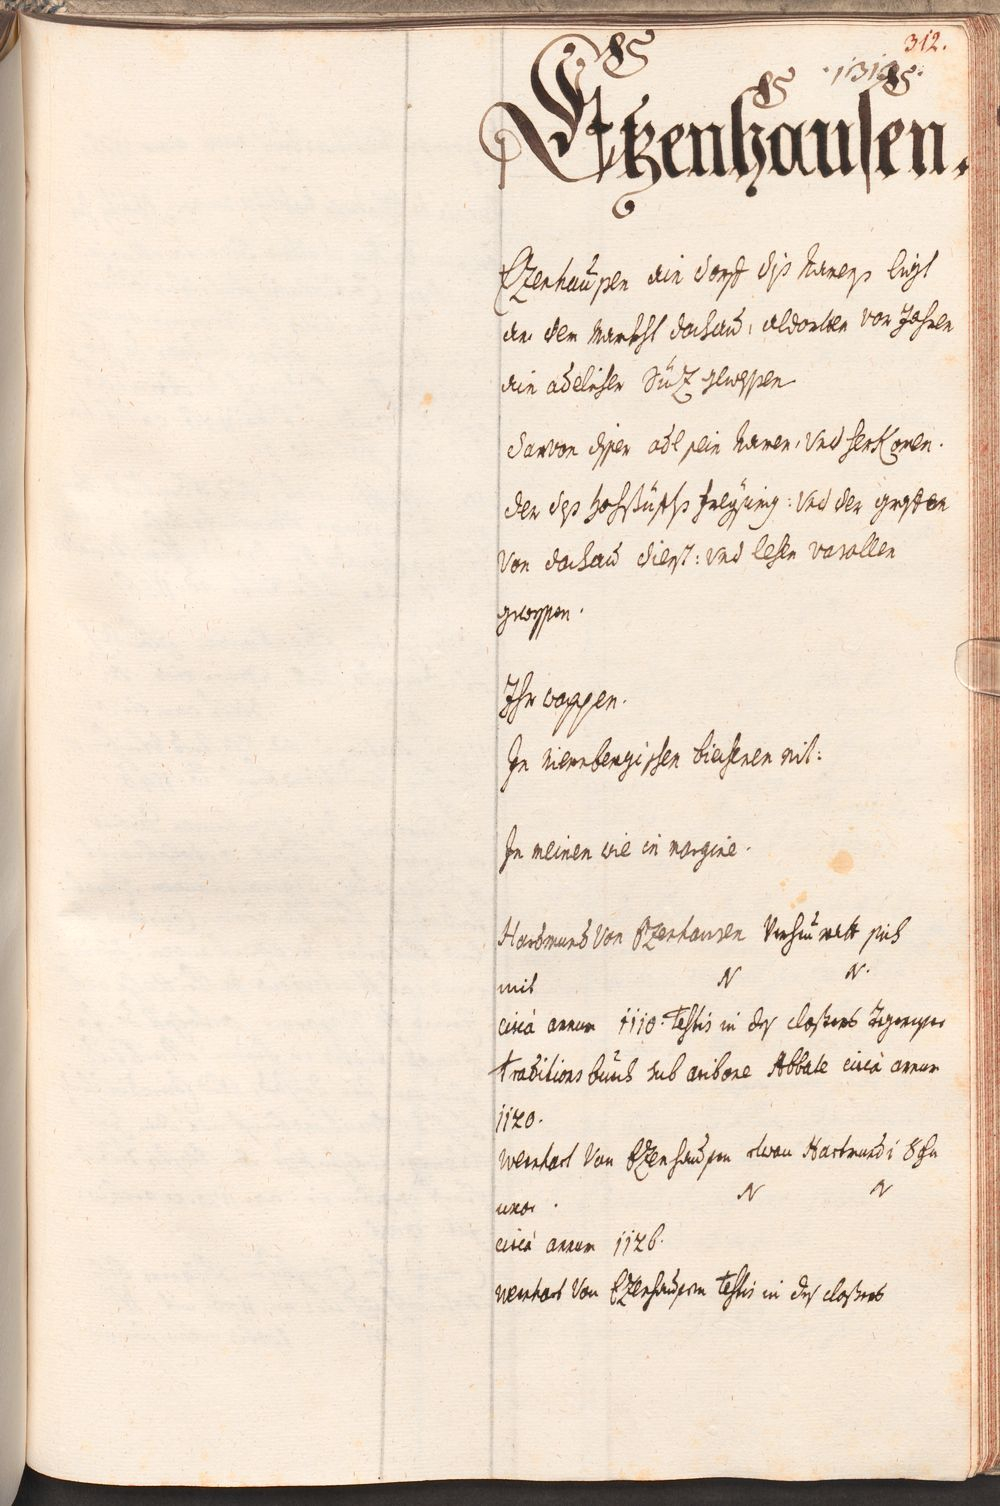 312.
Etzenhausen.
Ezenhausen ain dorff diss namens ligt
an dem markht dachau, aldorten vor Jahren
ain adelicher Süz gewessen
darvon disser adl sein namen, und herkomen.
der des hochstüfts freÿsing: und der graffen
von dachau dienst: und lehen vasallen
gewessen.
Ihr wappen.
In niernbergischen biechern nit:
In meinen wie in margine.
Hartmund von Ezenhausen verheurath sich
mit N N.
circà annum 1110. Testis in des closters Tegernsee
traditions buech sub aribone Abbate circà annum
1120.
Wernhart von Ezenhausen etwan Hartmundi Sohn
uxor N N
circà annum 1126.
Wernhart von Ezenhausen testis in des closters